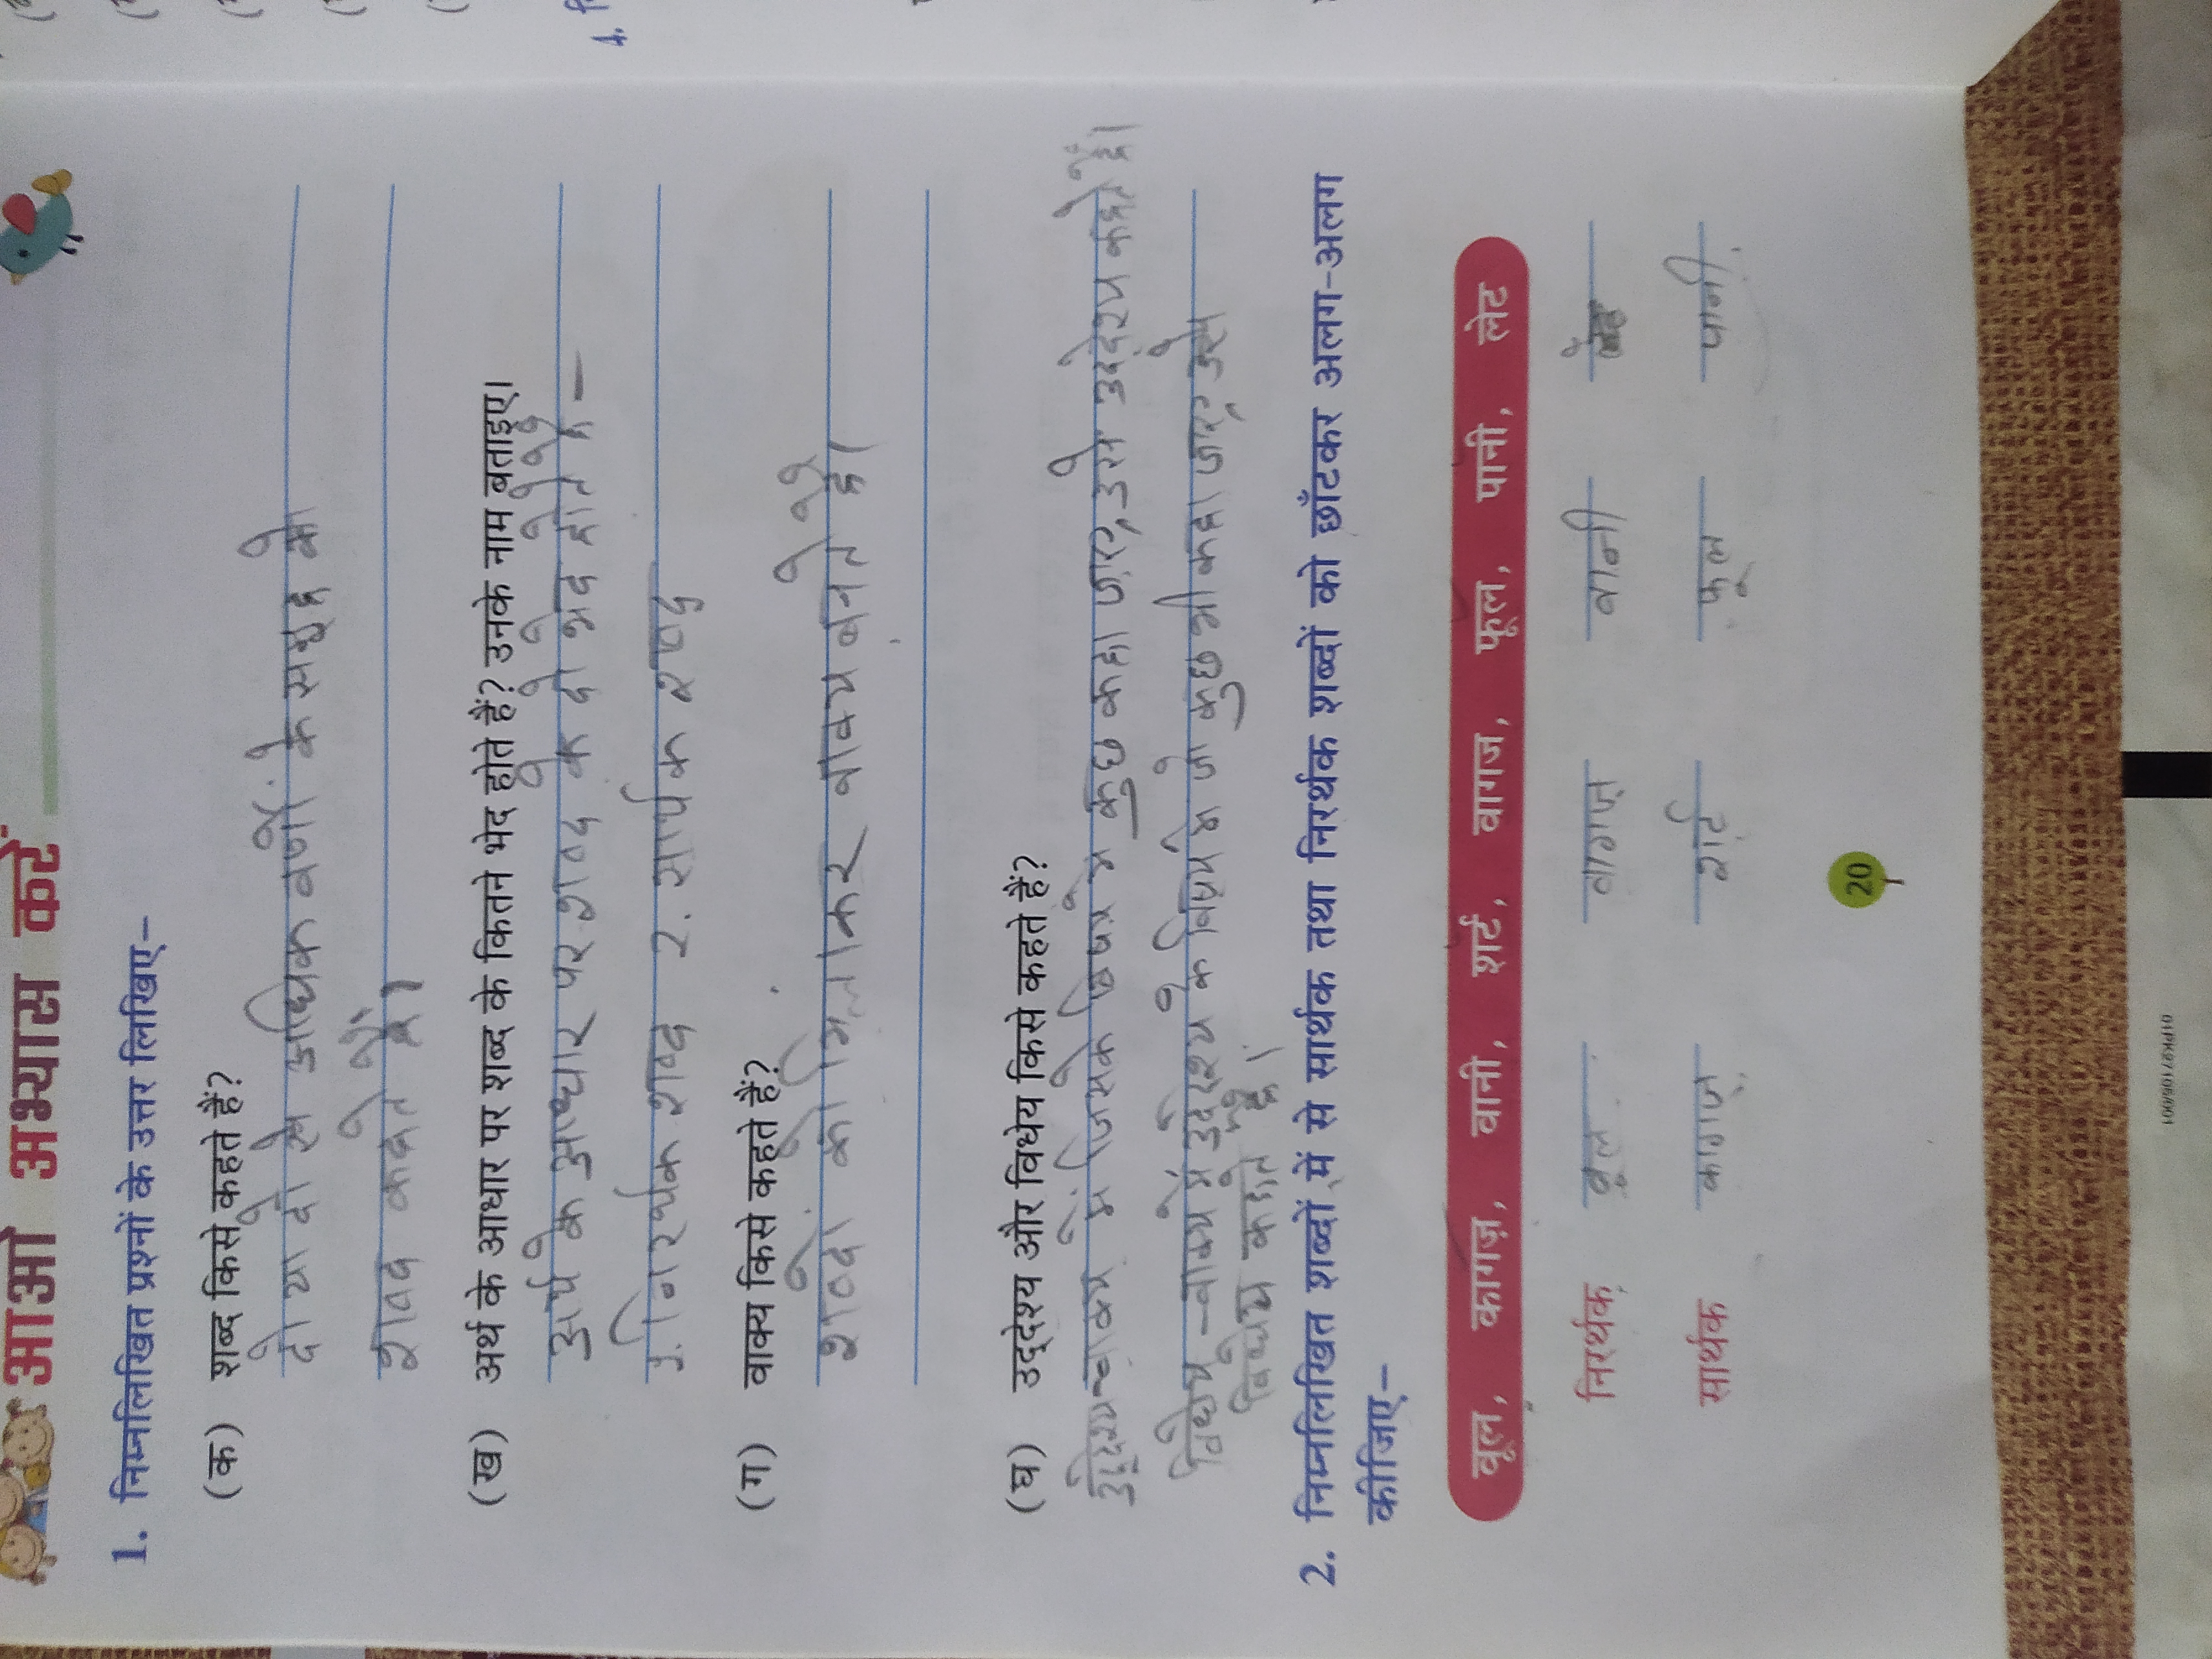 आओ अभ्यास करें
1. निम्नलिखित प्रश्नों के उत्तर लिखिए–
(क) शब्द किसे कहते हैं?
दो या दो से अधिक वर्णों के समूह को
शब्द कहते हैं।
(ख) अर्थ के आधार पर शब्द के कितने भेद होते हैं? उनके नाम बताइए।
अर्थ के आधार पर शब्द के दो भेद होते हैं –
1. निरर्थक शब्द 2. सार्थक शब्द
(ग) वाक्य किसे कहते हैं?
शब्दों को मिलाकर वाक्य बनते है।
(घ) उद्देश्य और विधेय किसे कहते हैं?
उद्देश्य – वाक्य में जिसके विषय में कुछ कहा जाए, उसे उद्देश्य कहते हैं।
विधेय – वाक्य में उद्देश्य के विषय में जो कुछ भी कहा जाए, उसे
विधेय कहते है।
2. निम्नलिखित शब्दों में से सार्थक तथा निरर्थक शब्दों को छाँटकर अलग-अलग
कीजिए–
वूल, कागज़, वानी, शर्ट, वागज, फूल, पानी, लेट
निरर्थक वूल वागज़ वानी
सार्थक कागज़ शर्ट फूल पानी
20
4.
01PK9710S/001